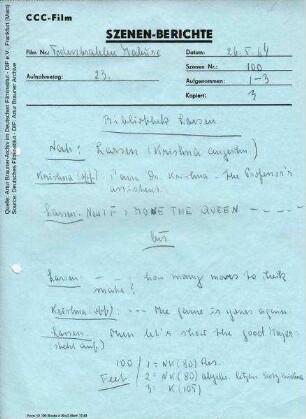 CCC-Film
SZENEN-BERICHTE
Film Nr.: Todesstrahlen Mabuse
Datum: 26. 5. 64
Szenen Nr.: 100
Aufnahmetag: 23.
Aufgenommen: 1-3
Kopiert: 3
Bibliothek Larsen
Nah: Larsen (Krishna
Krishna (off): I am Dr. Krishna - the Professor's
assistent.
Larsen: : MOVE THE QUEEN - - - -
bis
Larsen: - - - how many moves to
mate?
Krishna (off): - - - The game is yours again.
Larsen: then let's show the good Major
steht auf)
100 / 1 = NK (80)
Feet / 2 = NK (80)
3 = K (105)
Quelle: Artur Brauner-Archiv im Deutschen Filminstitut - DIF e.V., Frankfurt (Main)
Source: Deutsches Filminstitut - DIF / Artur Brauner Archive